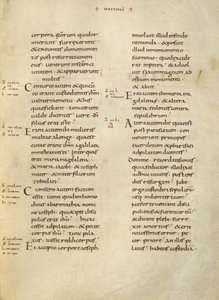 MATTHEU
corpora scorum qui dor
mierant surrexerunt
& exeuntes de monumentis
post resurrectionem
eius uenerunt in scam ciui
tatem & apparuerunt
multis
Centurio autem & qui cum
eo erant custodientes ihm
uiso terrae motu & his quae
fiebant timuerunt
ualde dicentes uere di
filius erat iste
Erant autem ibi mulieres
multae a longe quae se
cutae erant ihm a galilaea
ministrantes ei inter quas
erat maria magdalene
& maria iacobi & ioseph
mater & mater filiorum
zebedaei
Cum sero autem factum
esset uenit quidam homo
diues ab arimathia nomi
ne ioseph qui & ipse disci
pulus erat ihu hic acces
sit ad pilatum & petiit
corpus ihu tunc pila
tus iussit reddi corpus
Et accepto corpore ioseph
inuoluit illud in sindone
munda & posuit
illud in monumento
suo nouo quod exciderat
in petra & aduoluit
saxum magnum ad
ostium monumenti
& abiit
Erat autem ibi maria mag
dalene & altera maria
sedentes contra sepulchrum
Altera autem die quae est
post parasceuen con
uenerunt principes
sacerdotum & pharisaei
ad pilatum dicentes
Domine recordati sumus
quia seductor ille dixit
adhuc uiuens post tres
dies resurgam iube
ergo custodiri sepul
chrum usque in diem
tertium ne forte ueniant
discipuli eius & furentur
eum & dicant plebi sur
rexit a mortuis & erit
nouissimus error pe
ior priore ait illis pi
latus habetis custodiam